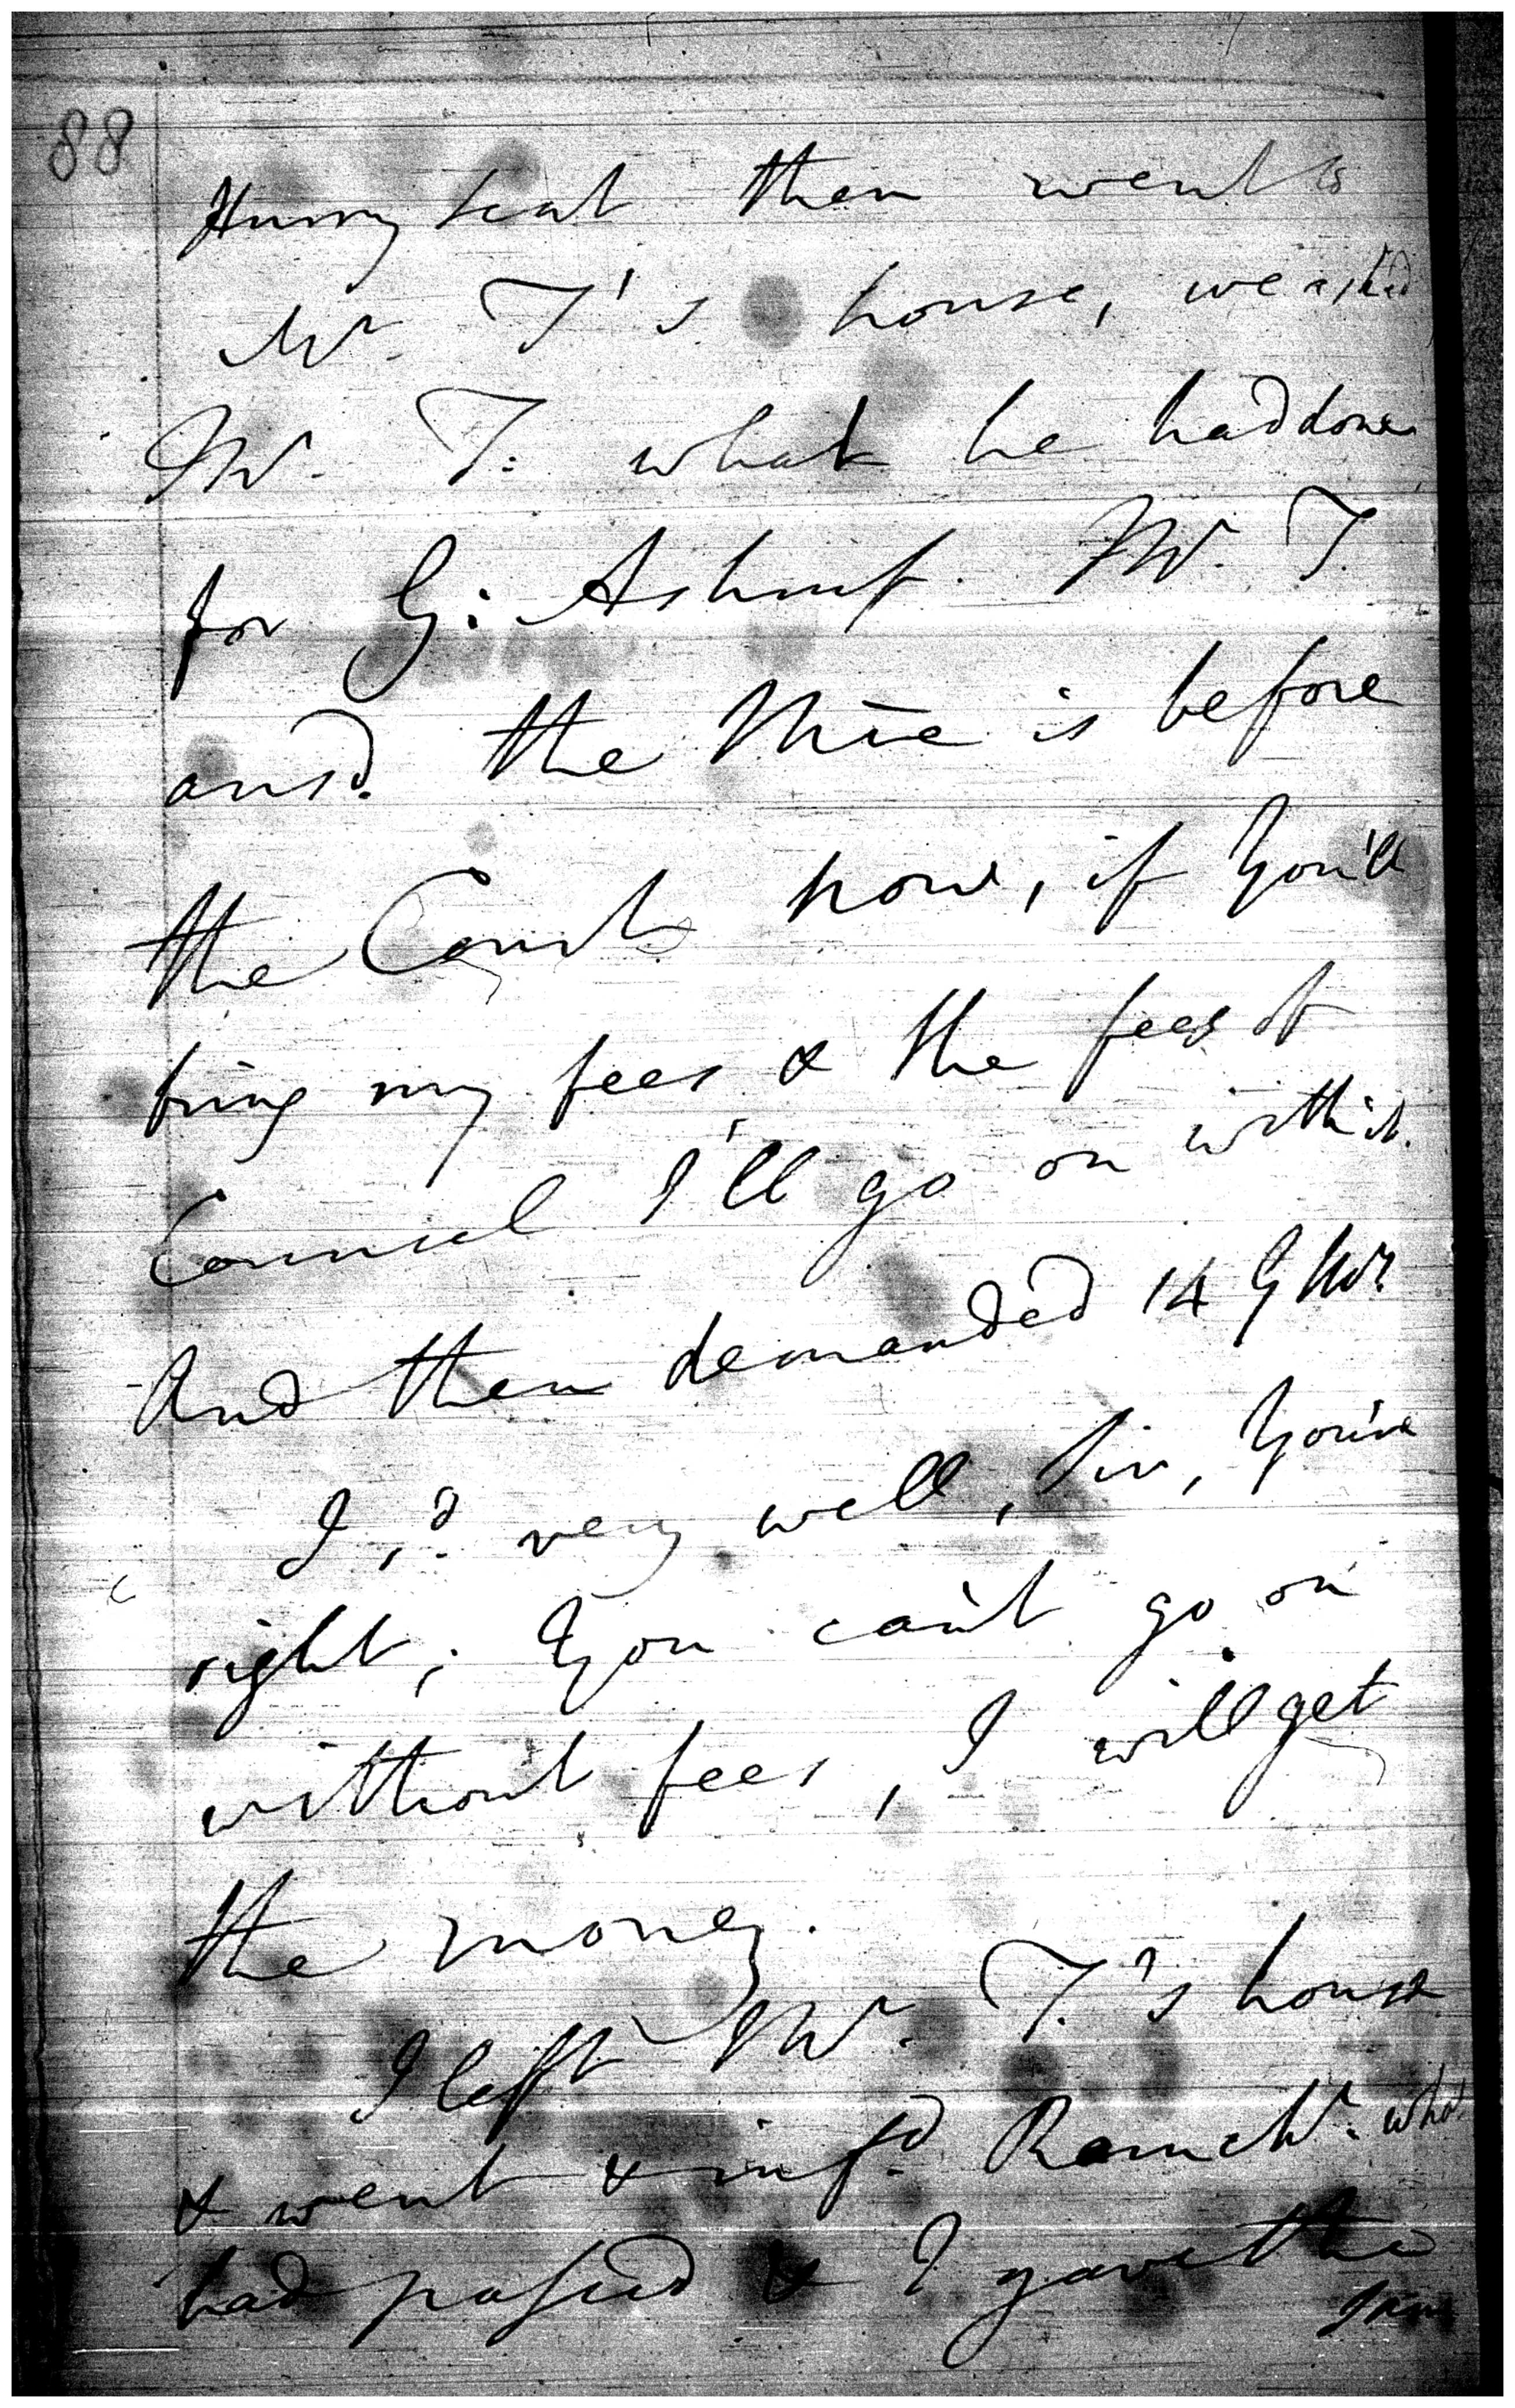 88
then went to
Mr. T's house, we asked
Mr. T. what he had done
for G: Ashruf. Mr. T.
ansd. the Mre is before
the Court now, if You'll
bring my fees & the fees of
Counsel I'll go on with it.
And then demanded 14 G Mrs
I sd. very well, Sir, You're
right, You can't go on
without fees, I will get
the money.
I left Mr. T.'s house
& went & infd. Ramchr. what
had passed & I gave the
same